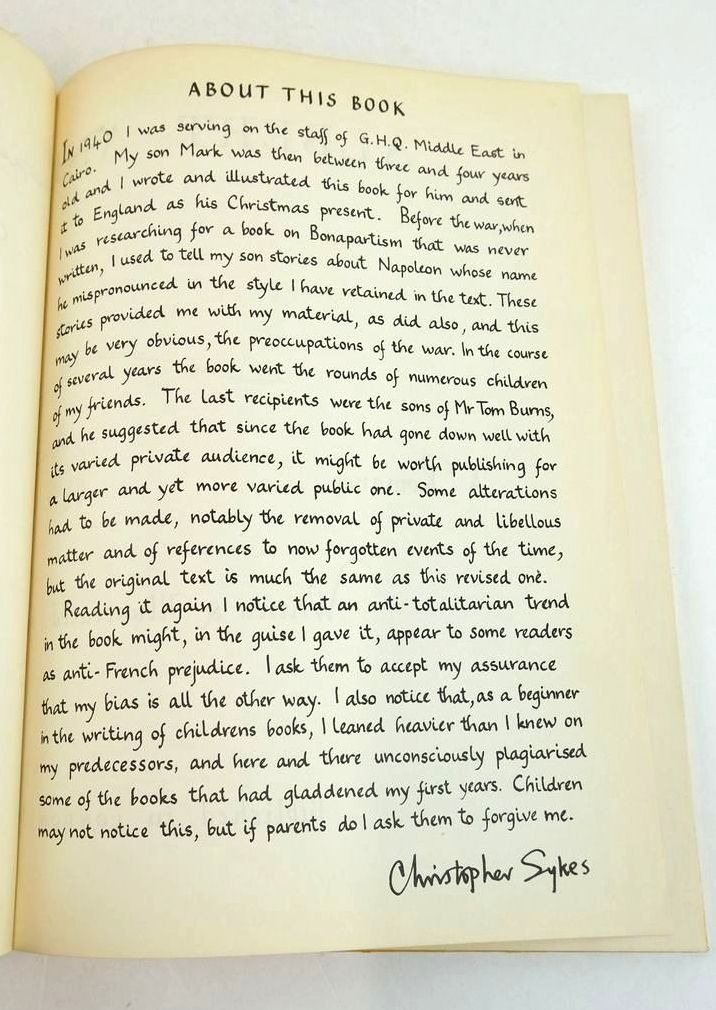 ABOUT THIS BOOK
IN 1940 I was serving on the staff of G.H.Q. Middle East in
Cairo. My son Mark was then between three and four years
old and I wrote and illustrated this book for him and sent
it to England as his Christmas present. Before the war, when
I was researching for a book on Bonapartism that was never
written, I used to tell my son stories about Napoleon whose name
he mispronounced in the style I have retained in the text. These
stories provided me with my material, as did also, and this
may be very obvious, the preoccupations of the war. In the course
of several years the book went the rounds of numerous children
of my friends. The last recipients were the sons of Mr Tom Burns,
and he suggested that since the book had gone down well with
its varied private audience, it might be worth publishing for
a larger and yet more varied public one. Some alterations
had to be made, notably the removal of private and libellous
matter and of references to now forgotten events of the time,
but the original text is much the same as this revised one.
Reading it again I notice that an anti-totalitarian trend
in the book might, in the guise I gave it, appear to some readers
as anti-French prejudice. I ask them to accept my assurance
that my bias is all the other way. I also notice that, as a beginner
in the writing of childrens books, I leaned heavier than I knew on
my predecessors, and here and there unconsciously plagiarised
some of the books that had gladdened my first years. Children
may not notice this, but if parents do I ask them to forgive me.
Christopher Sykes